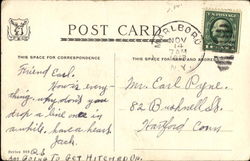 POST CARD
MARLBORO
NOV
14
7AM
N.Y.
THIS SPACE FOR CORRESPONDENCE
THIS SPACE FOR ADDRESS
Friend Earl.
How's every-
thing. why don't you
drop a line once in
awhile, have a heart
Jack.
Mr. Earl Payne.
82 Bushnell St.
Hartford Conn
Series
Am Going To Get Hitched